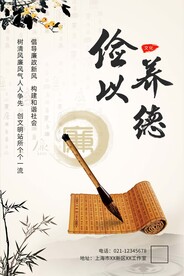 俭以养德
文化
倡导廉政新风 构建和谐社会
树清风廉风气人人争先 创文明站所个个一流
廉
电话:021-12345678
地址:上海市XX新区XX工作室